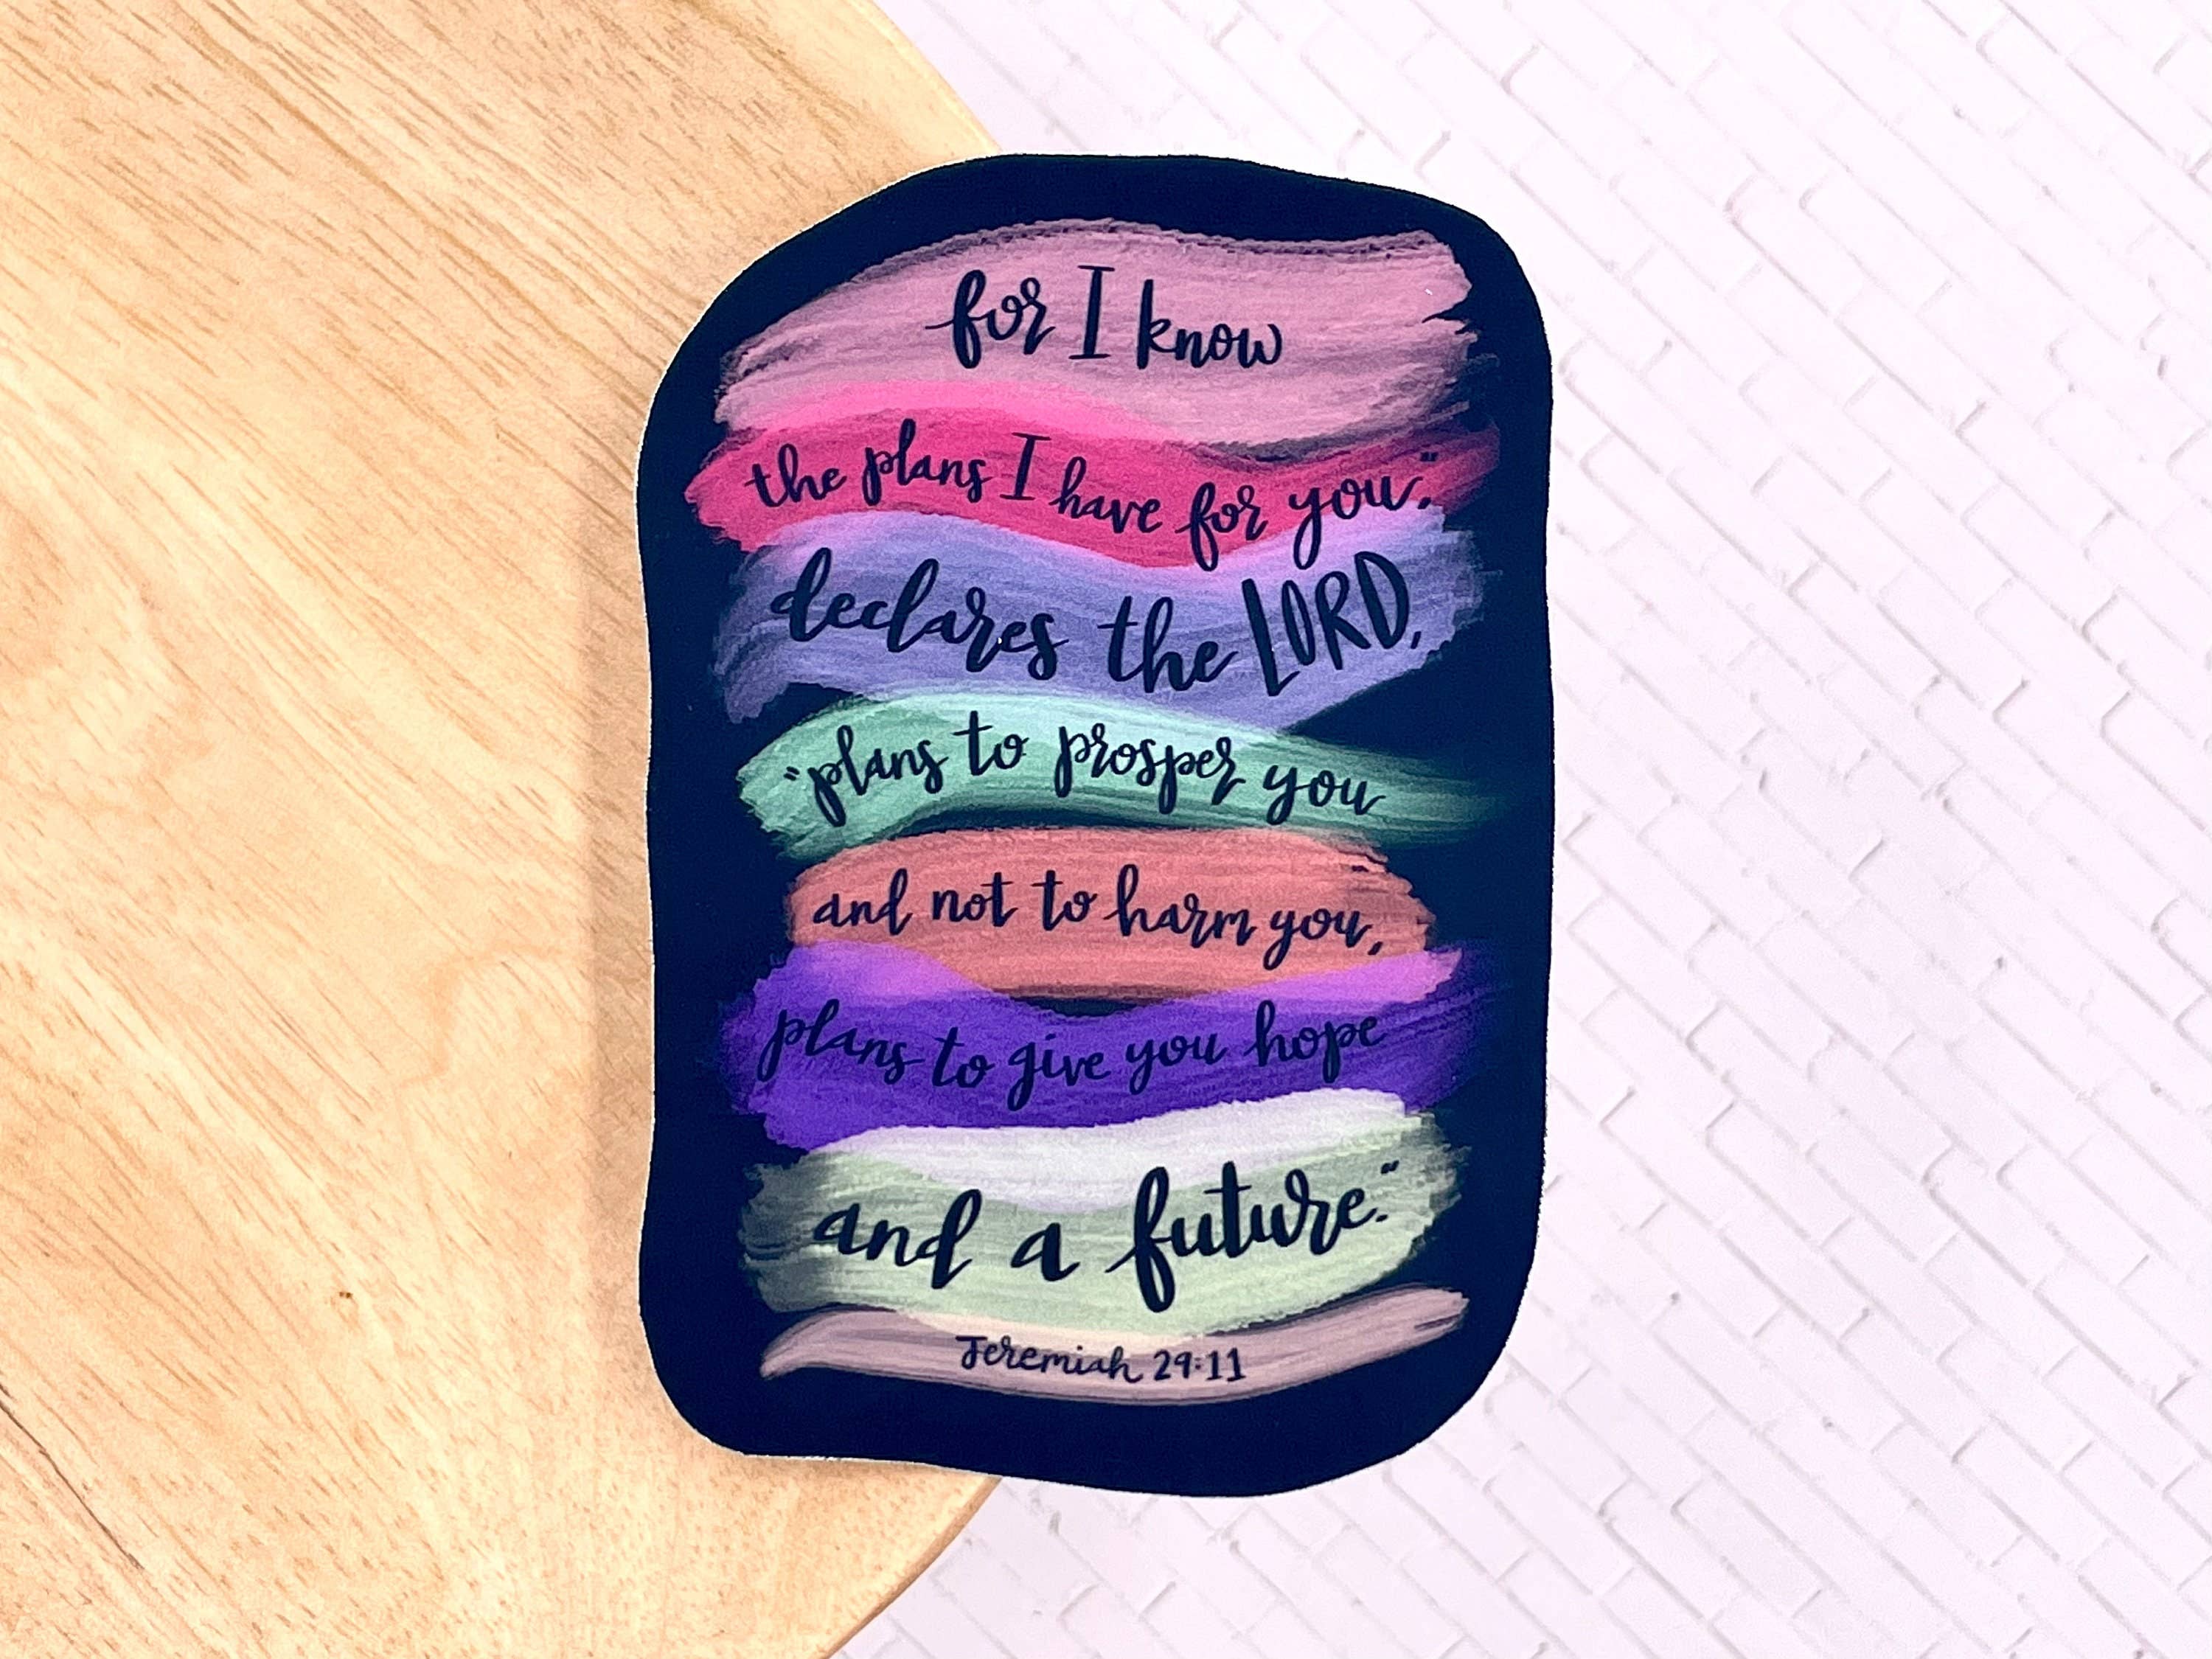 for I know
the plans I have for you,"
declares the LORD,
"plans to prosper you
and not to harm you,
plans to give you hope
and a future."
Jeremiah 29:11